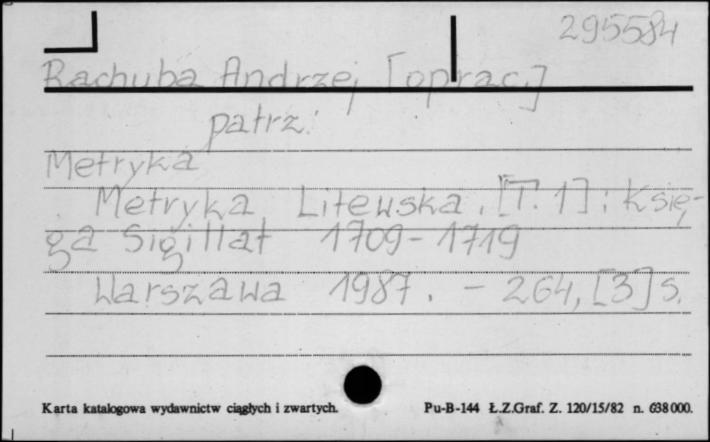 295584
Rachuba Andrzej [oprac.]
patrz:
Metryka
Metryka Litewska. [T. 1]: Księ-
ga Sigillat 1709-1719
Warszawa 1987. - 264, [3] s.
Karta katalogowa wydawnictw ciągłych i zwartych. Pu-B-144 Ł.Z.Graf. Z. 120/15/82 n. 638000.